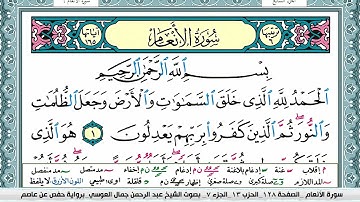 سُورَةُ الأَنْعَامِ
ترتيبها ٦
آياتها ١٦٥
بِسْمِ اللَّهِ الرَّحْمَٰنِ الرَّحِيمِ
الْحَمْدُ لِلَّهِ الَّذِي خَلَقَ السَّمَاوَاتِ وَالْأَرْضَ وَجَعَلَ الظُّلُمَاتِ
وَالنُّورَ ثُمَّ الَّذِينَ كَفَرُوا بِرَبِّهِمْ يَعْدِلُونَ ١ هُوَ الَّذِي
سورة الأنعام الصفحة ١٢٨ الحزب ١٣ الجزء ٧ بصوت الشيخ عبد الرحمن جمال العوسي برواية حفص عن عاصم